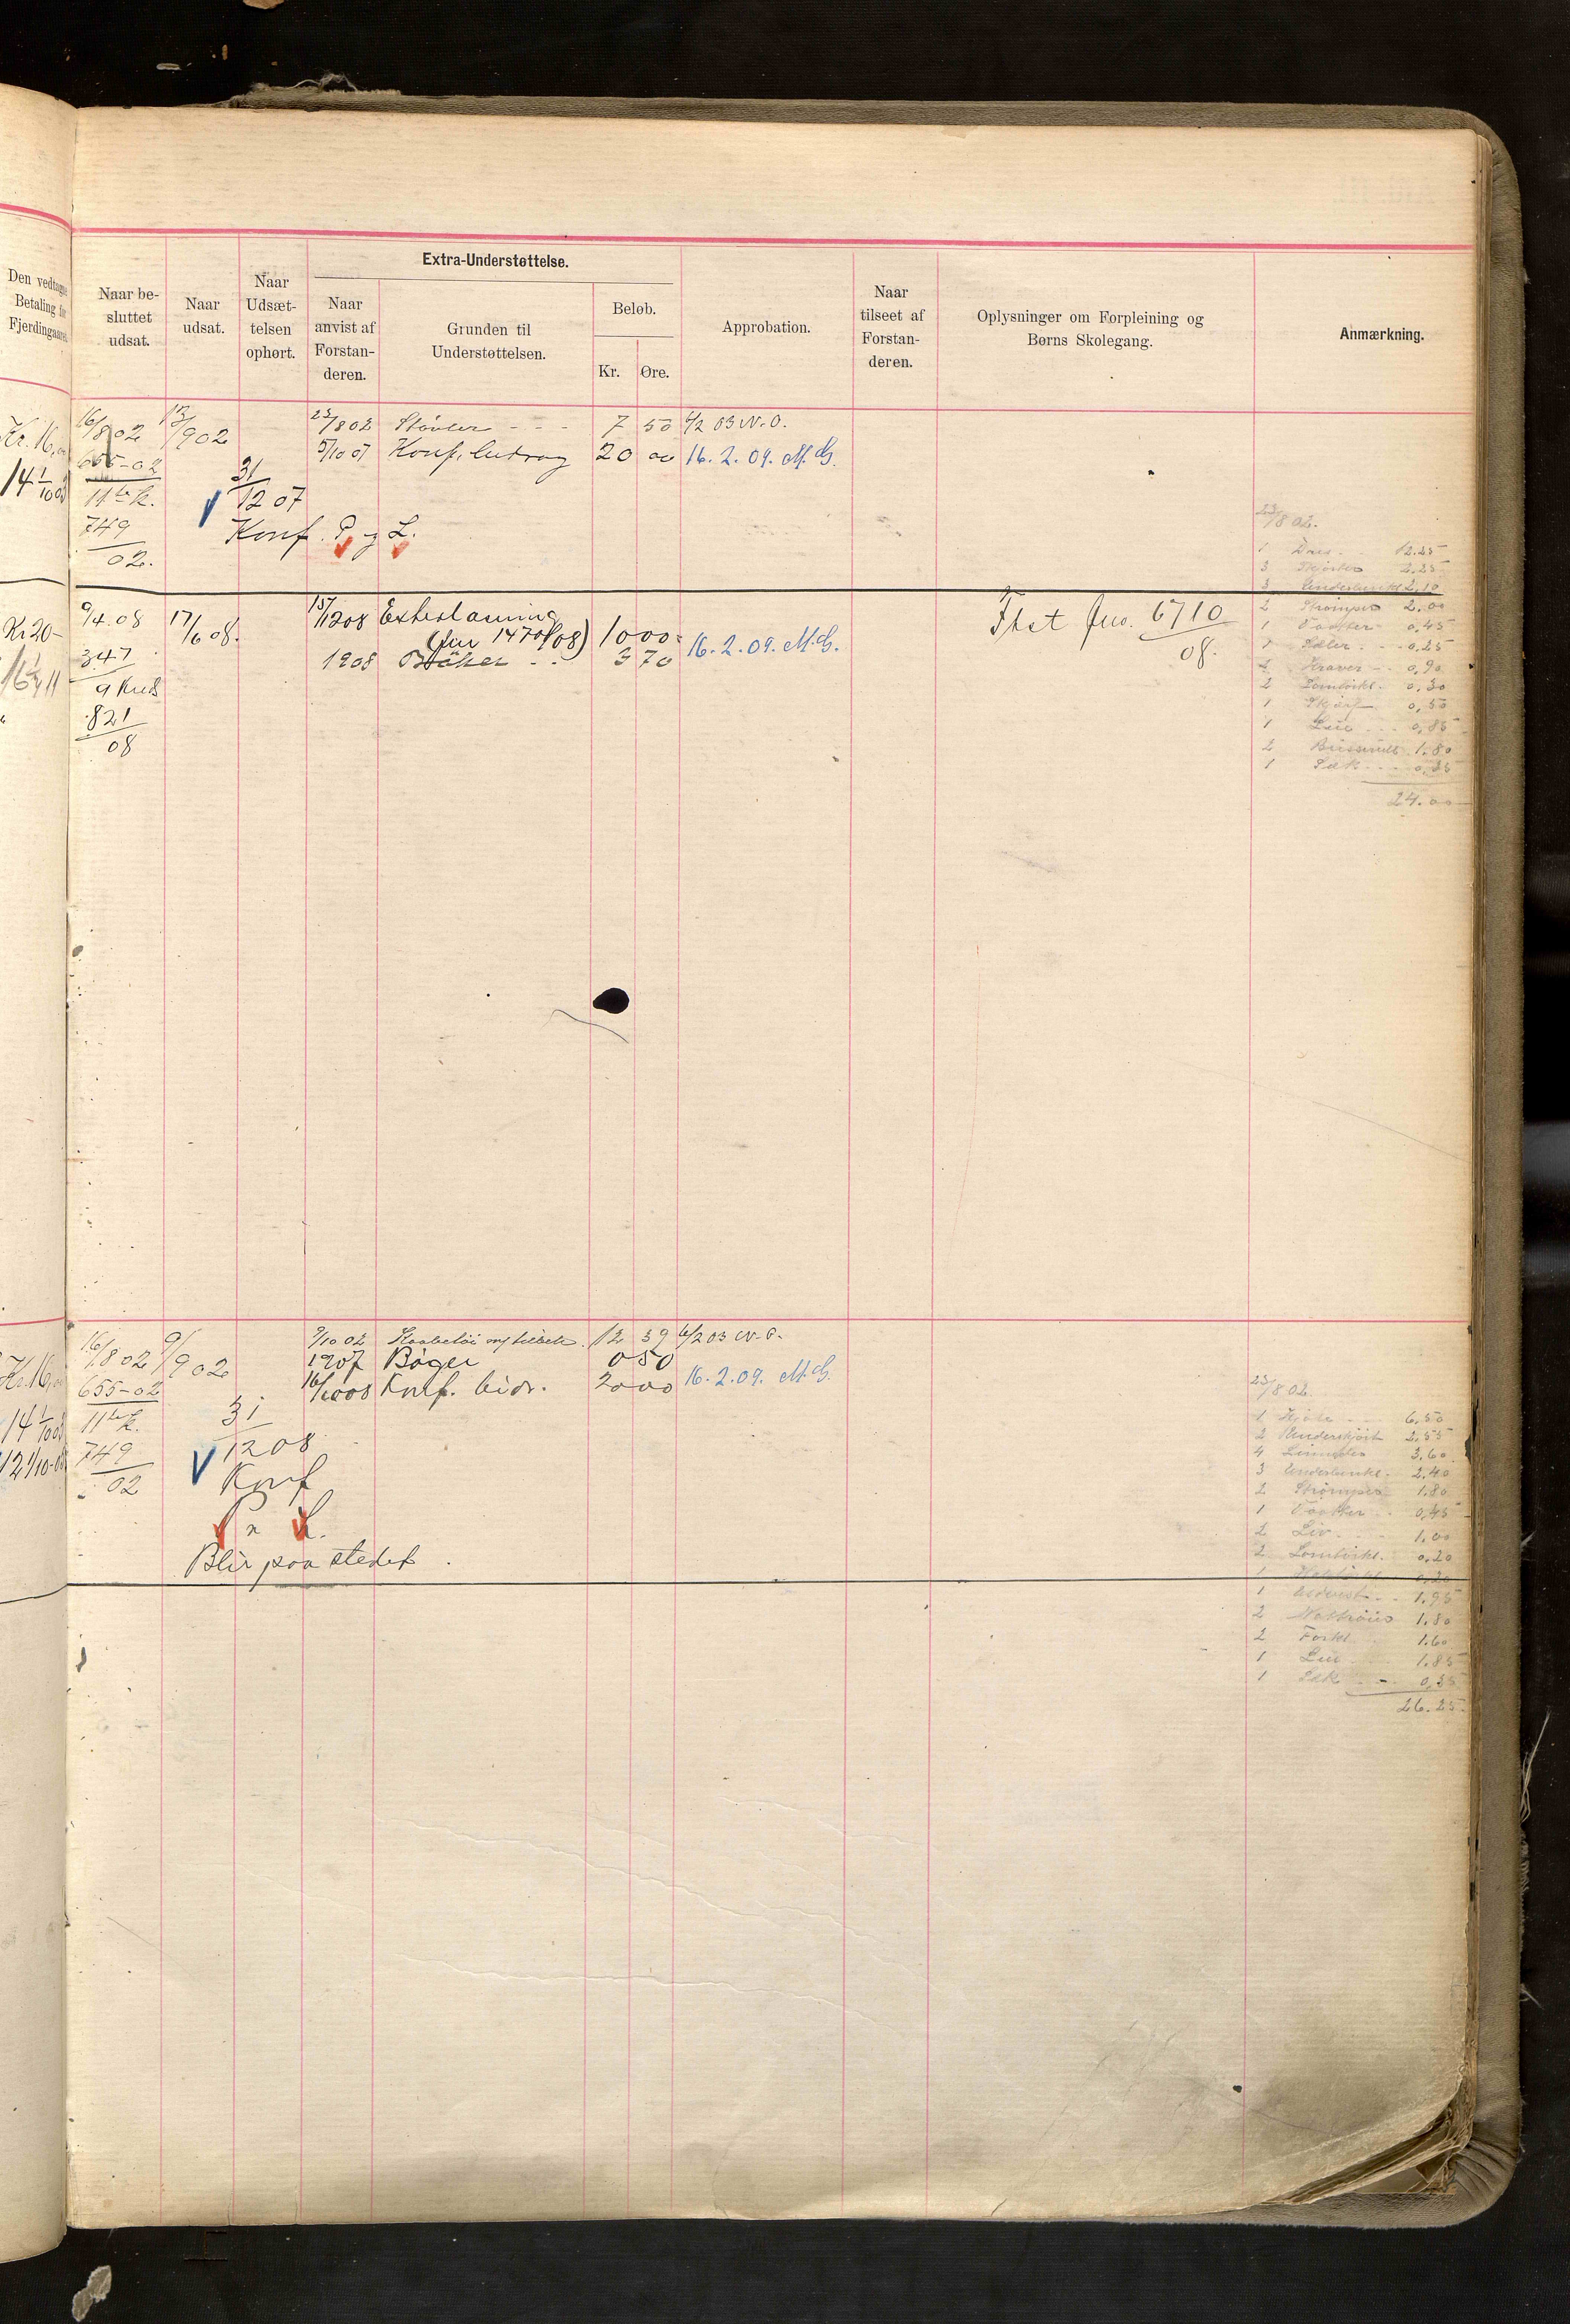 Den vedtagne
Betaling for
Fjerdingaaret
Naar be-
sluttet
udsat.
Naar
udsat.
Naar
Udsæt-
telsen
ophørt.
Extra-Understøttelse.
Naar
anvist af
Forstan-
deren.
Grunden til
Understøttelsen.
Beløb.
Kr.
Øre.
Approbation.
Naar
tilseet af
Forstan-
deren.
Oplysninger om Forpleining og
Børns Skolegang.
Anmærkning.
Kr. 16,00
16/8 02
655-02
11te K.
749
02.
13/9 02
31
12 07
Konf. P. og L.
23/8 02 Støvler - - - 7 50 6/2 03 N.O.
5/10 07 Konf. bidrag 20 00 16.2.09. M.G.
23/8 02.
1 12.25
3 2.25
3 2.10
2 Strømper 2.00
1 0,45
0,25
0,90
2 0,30
1 Skjærf 0,50
1 0,85
2 1.80
1 Sæk 0,35
24.00
Kr 20-
9/4.08
347
9 Kreds
821
08
17/6 08.
15/12 08
(Jur 1470/08) 10 00
1908 Bøker - - 3 70
16.2.09. M.G.
Jur. 6710
08.
Kr. 16,00
16/8 02
655-02
11te K.
749
02
9/9 02
31
12 08
Konf
P. L.
Blir paa stedet.
9/10 02 12 39 6/2 03 N.O.
1907 Bøger 0 50
16/10 08 Konf. bidr. 20 00 16.2.09. M.G.
23/8 02.
1 Kjole 6,50
2 Underskjørt 2,55
4 3.60
3 2.40
2 Strømper 1.80
1 0,45
2 Liv 1.00
2 0,20
1 0,20
1 1.95
2 1.80
2 Forkl. 1.60
1 1.85
1 Sæk - 0,35
26.25